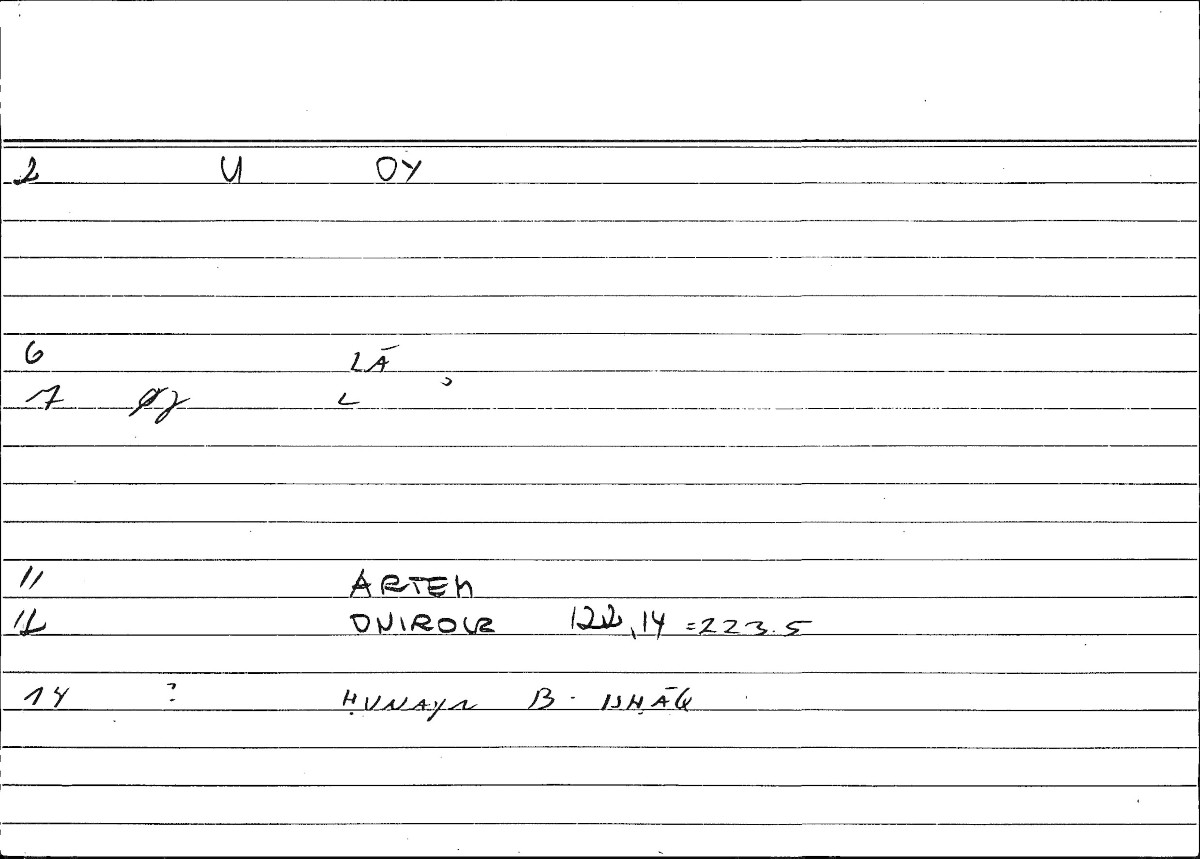 2 U OY
6 LĀ
7 øy L ʾ
11 ARTEM
12 ONIROCR 122,14 = 223.5
14 ? ḤUNAYN B. ISḤĀQ